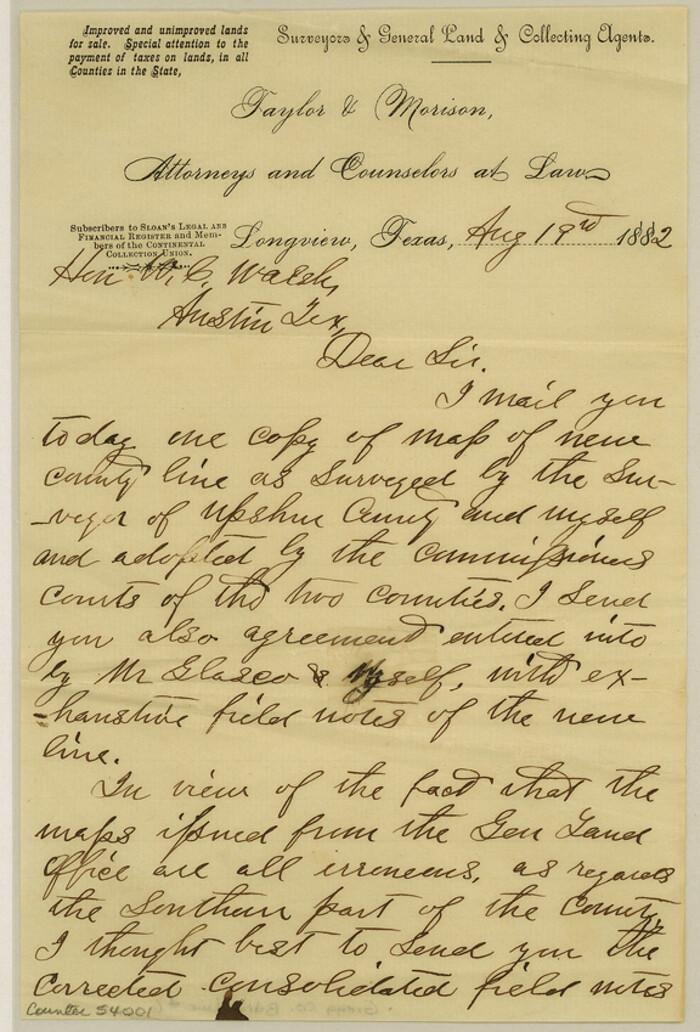 Improved and unimproved lands
for sale. Special attention to the
payment of taxes on lands, in all
Counties in the State,
Surveyors & General Land & Collecting Agents.
Taylor & Morison,
Attorneys and Counselors at Law
Subscribers to Sloan's Legal and
Financial Register and Mem-
bers of the Continental
Collection Union.
Longview, Texas, Aug 19th 1882
Hon. W. C. Walsh,
Austin Tex,
Dear Sir.
I mail you
today one copy of map of new
county line as surveyed by the Sur-
-veyor of Upshur County and myself
and adopted by the commissioners
courts of the two counties. I send
you also agreement entered into
by Mr Glasco & myself, with ex-
-haustive field notes of the new
line.
In view of the fact that the
maps issued from the Gen Land
Office are all erroneous, as regards
the Southern part of the County,
I thought best to send you the
corrected consolidated field notes
Counter 54001